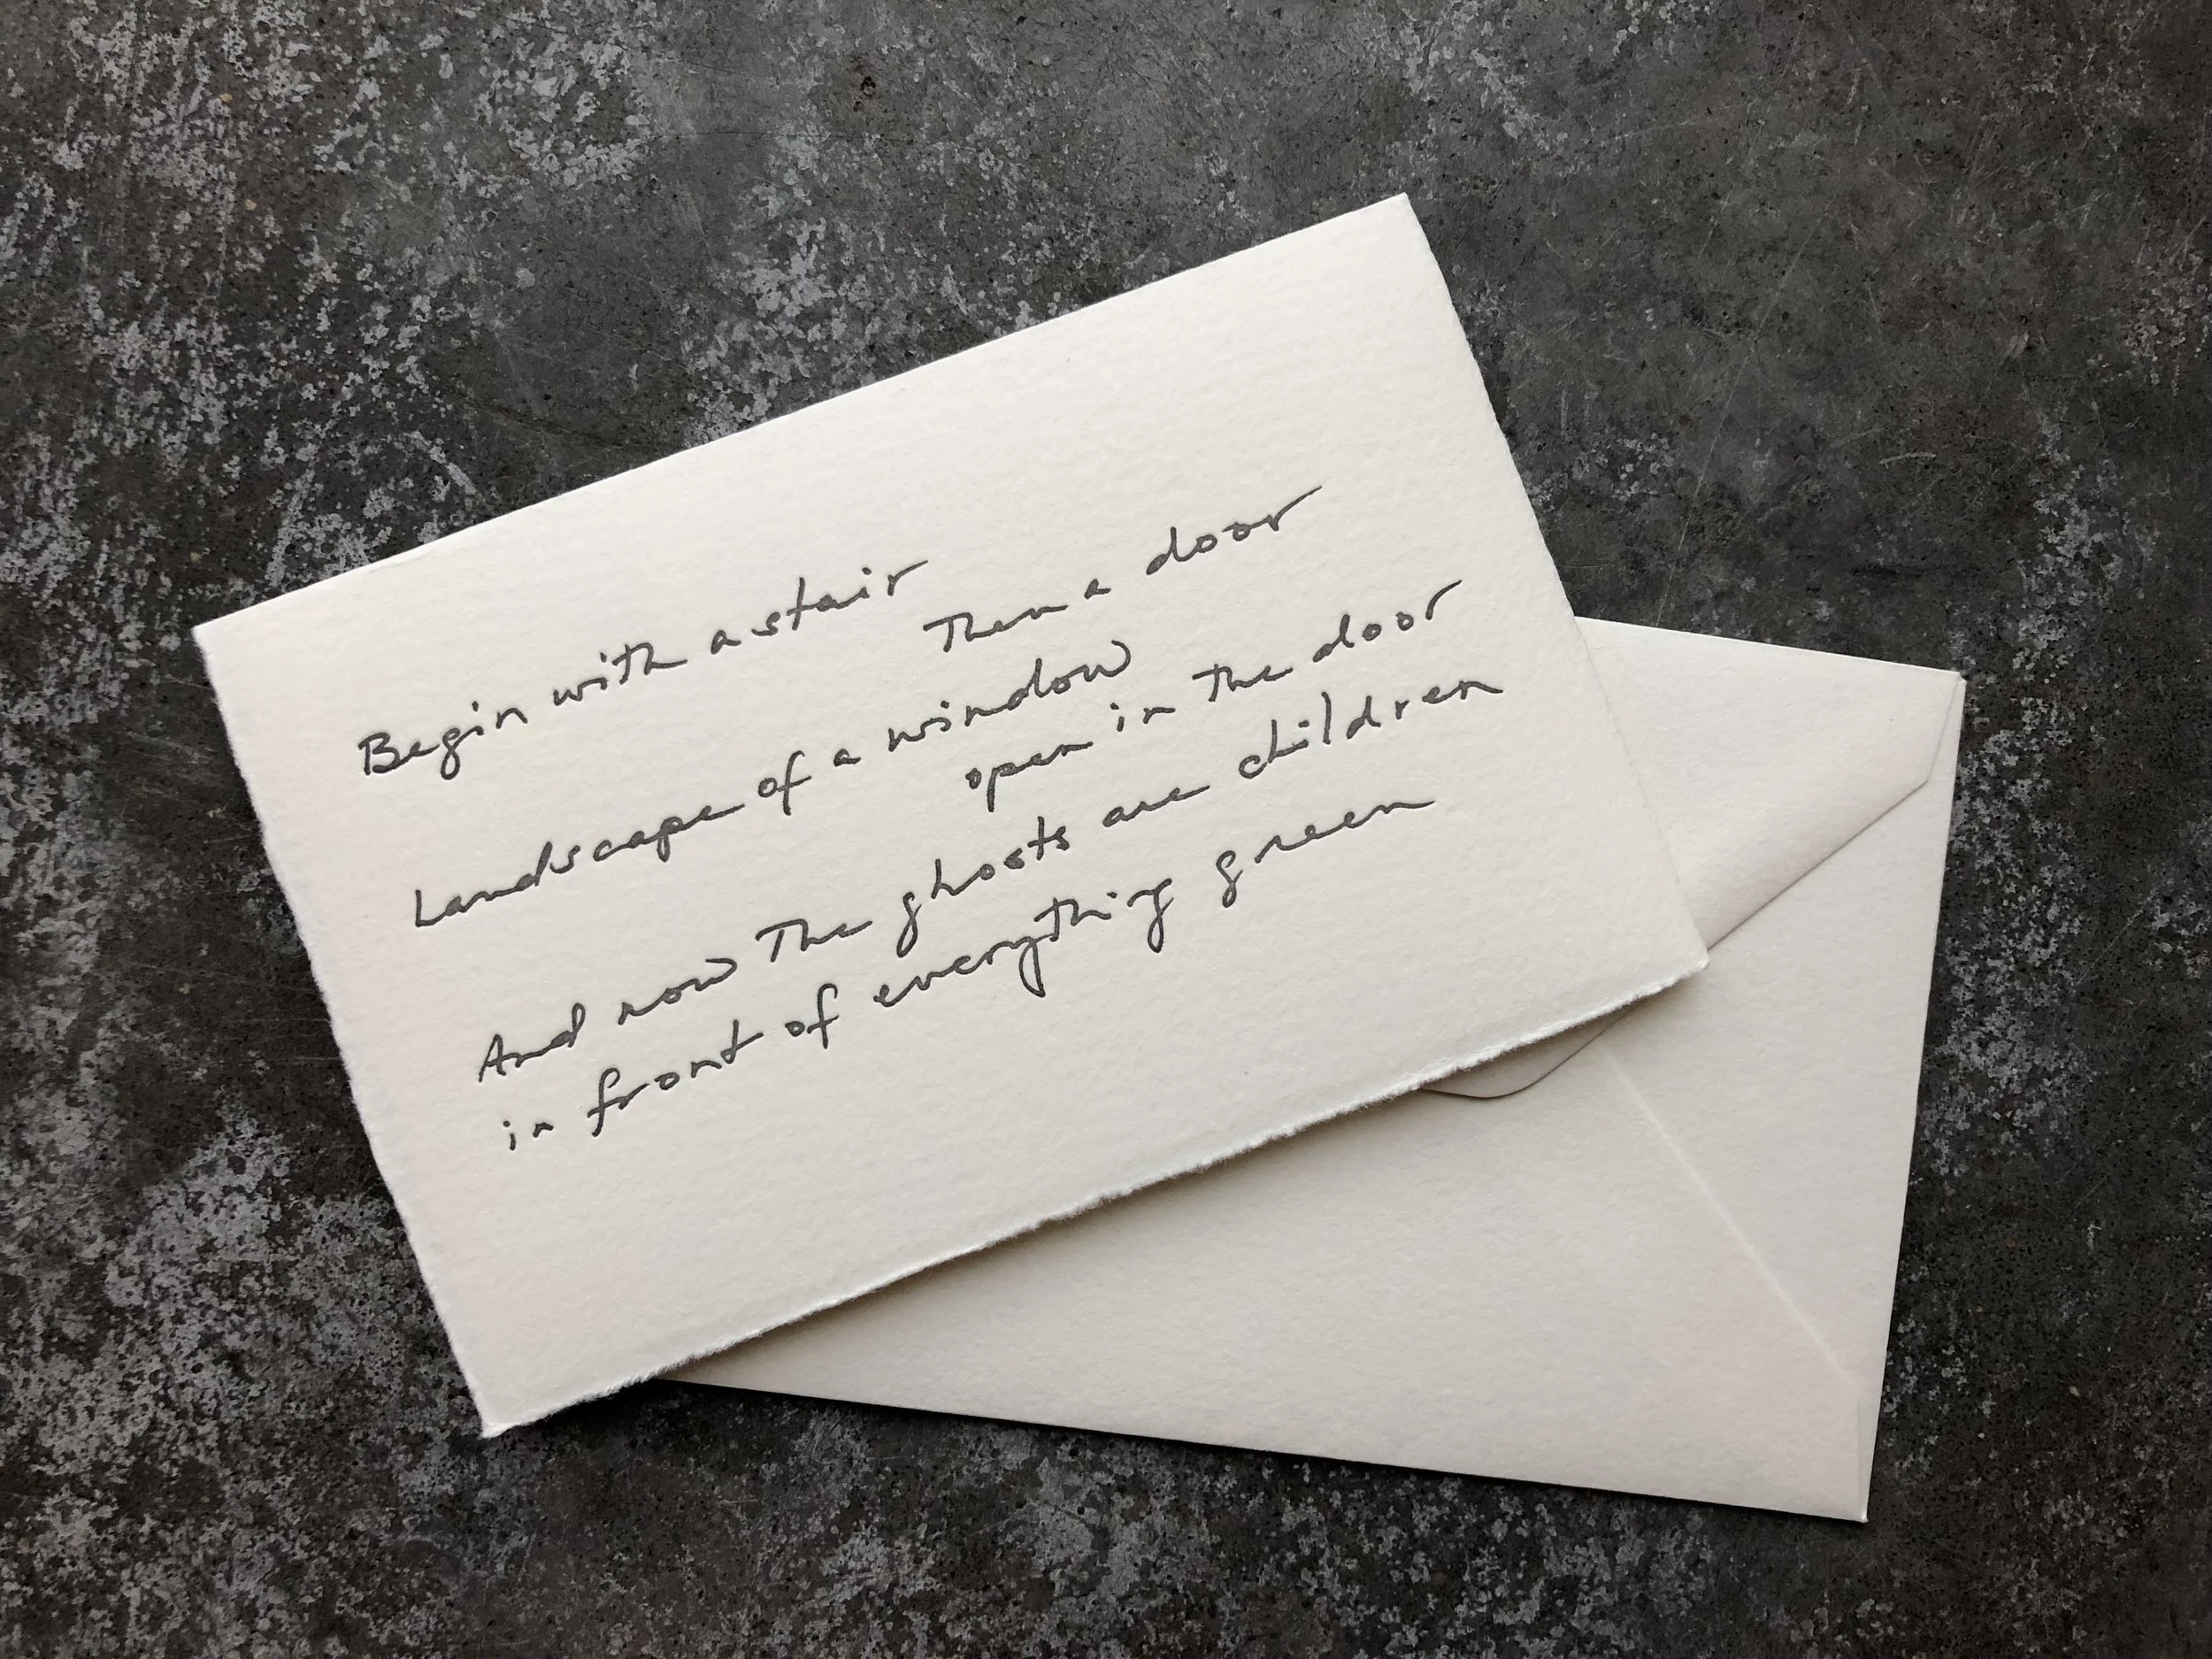 Begin with a stair
Then a door
Landscape of a window
open in the door
And now the ghosts are children
in front of everything green